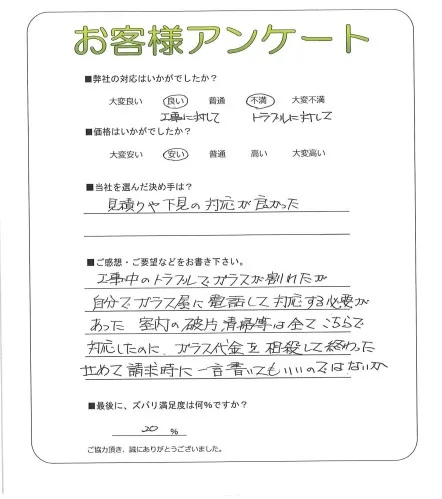 お客様アンケート
■弊社の対応はいかがでしたか?
大変良い 良い 普通 不満 大変不満
工事に対して トラブルに対して
■価格はいかがでしたか?
大変安い 安い 普通 高い 大変高い
■当社を選んだ決め手は?
見積りや下見の対応が良かった
■ご感想・ご要望などをお書き下さい。
工事中のトラブルでガラスが割れたが
自分でガラス屋に電話して対応する必要が
あった 室内の破片清掃等は全てこちらで
対応したのに、ガラス代金を相殺して終わった
せめて請求時に一言書いてもいいのではないか
■最後に、ズバリ満足度は何%ですか?
20 %
ご協力頂き、誠にありがとうございました。